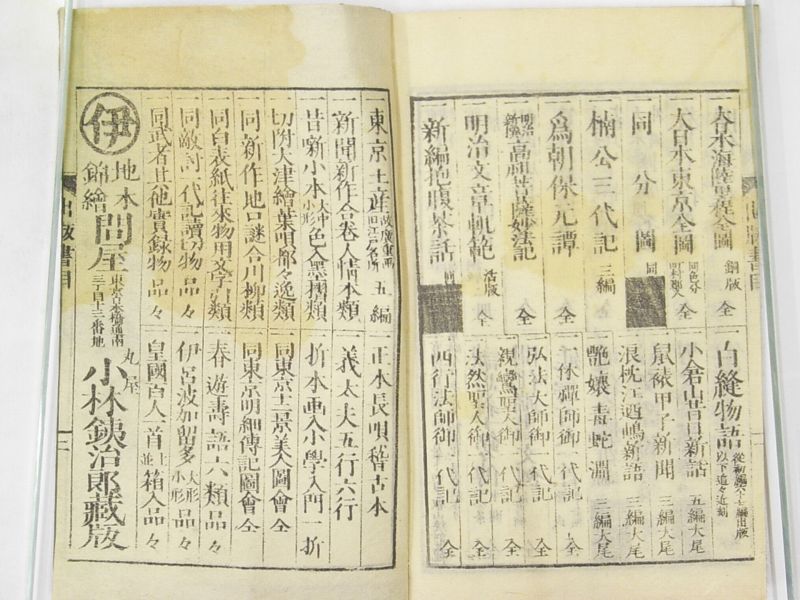 海陸里程全圖 銅版 全
大日本東京全圖 全
同分圖 同
楠公三代記 三編
為朝保元譚 全
妙法記 全
明治文章軌範 活版 全
新編抱腹茶話
白縫物語 以下追々近刻
小倉山昔日新話 五編大尾
甲子新聞 三編大尾
浪枕江逎嶋新語 三編大尾
艶嬢毒蛇淵 三編大尾
一休禪師御一代記 全
弘法大師御一代記 全
親鸞聖人御一代記 全
法然聖人御一代記 全
西行法師御一代記 全
東京土産 故廣重画 旧江戸名所 五編
新聞新作合巻人情本類
昔噺小本 大中小形 色入墨摺類
切附大津繪葉唄都々逸類
同新作地口謎合川柳類
同白表紙往來物用文字引類
同敵討一代記讀切物 品々
同武者其他實録物 品々
正本長唄稽古本
義太夫五行六行
折本画入小學入門 一折
同東京十二景美人圖會 全
同東京明細傳記圖會 全
春遊壽語六類品々
伊呂波加留多 大形小形 品々
皇國百人一首 上並 箱入品々
伊
地本錦繪問屋
東京日本橋通南三丁目十三番地
丸屋
小林銕治郎藏版